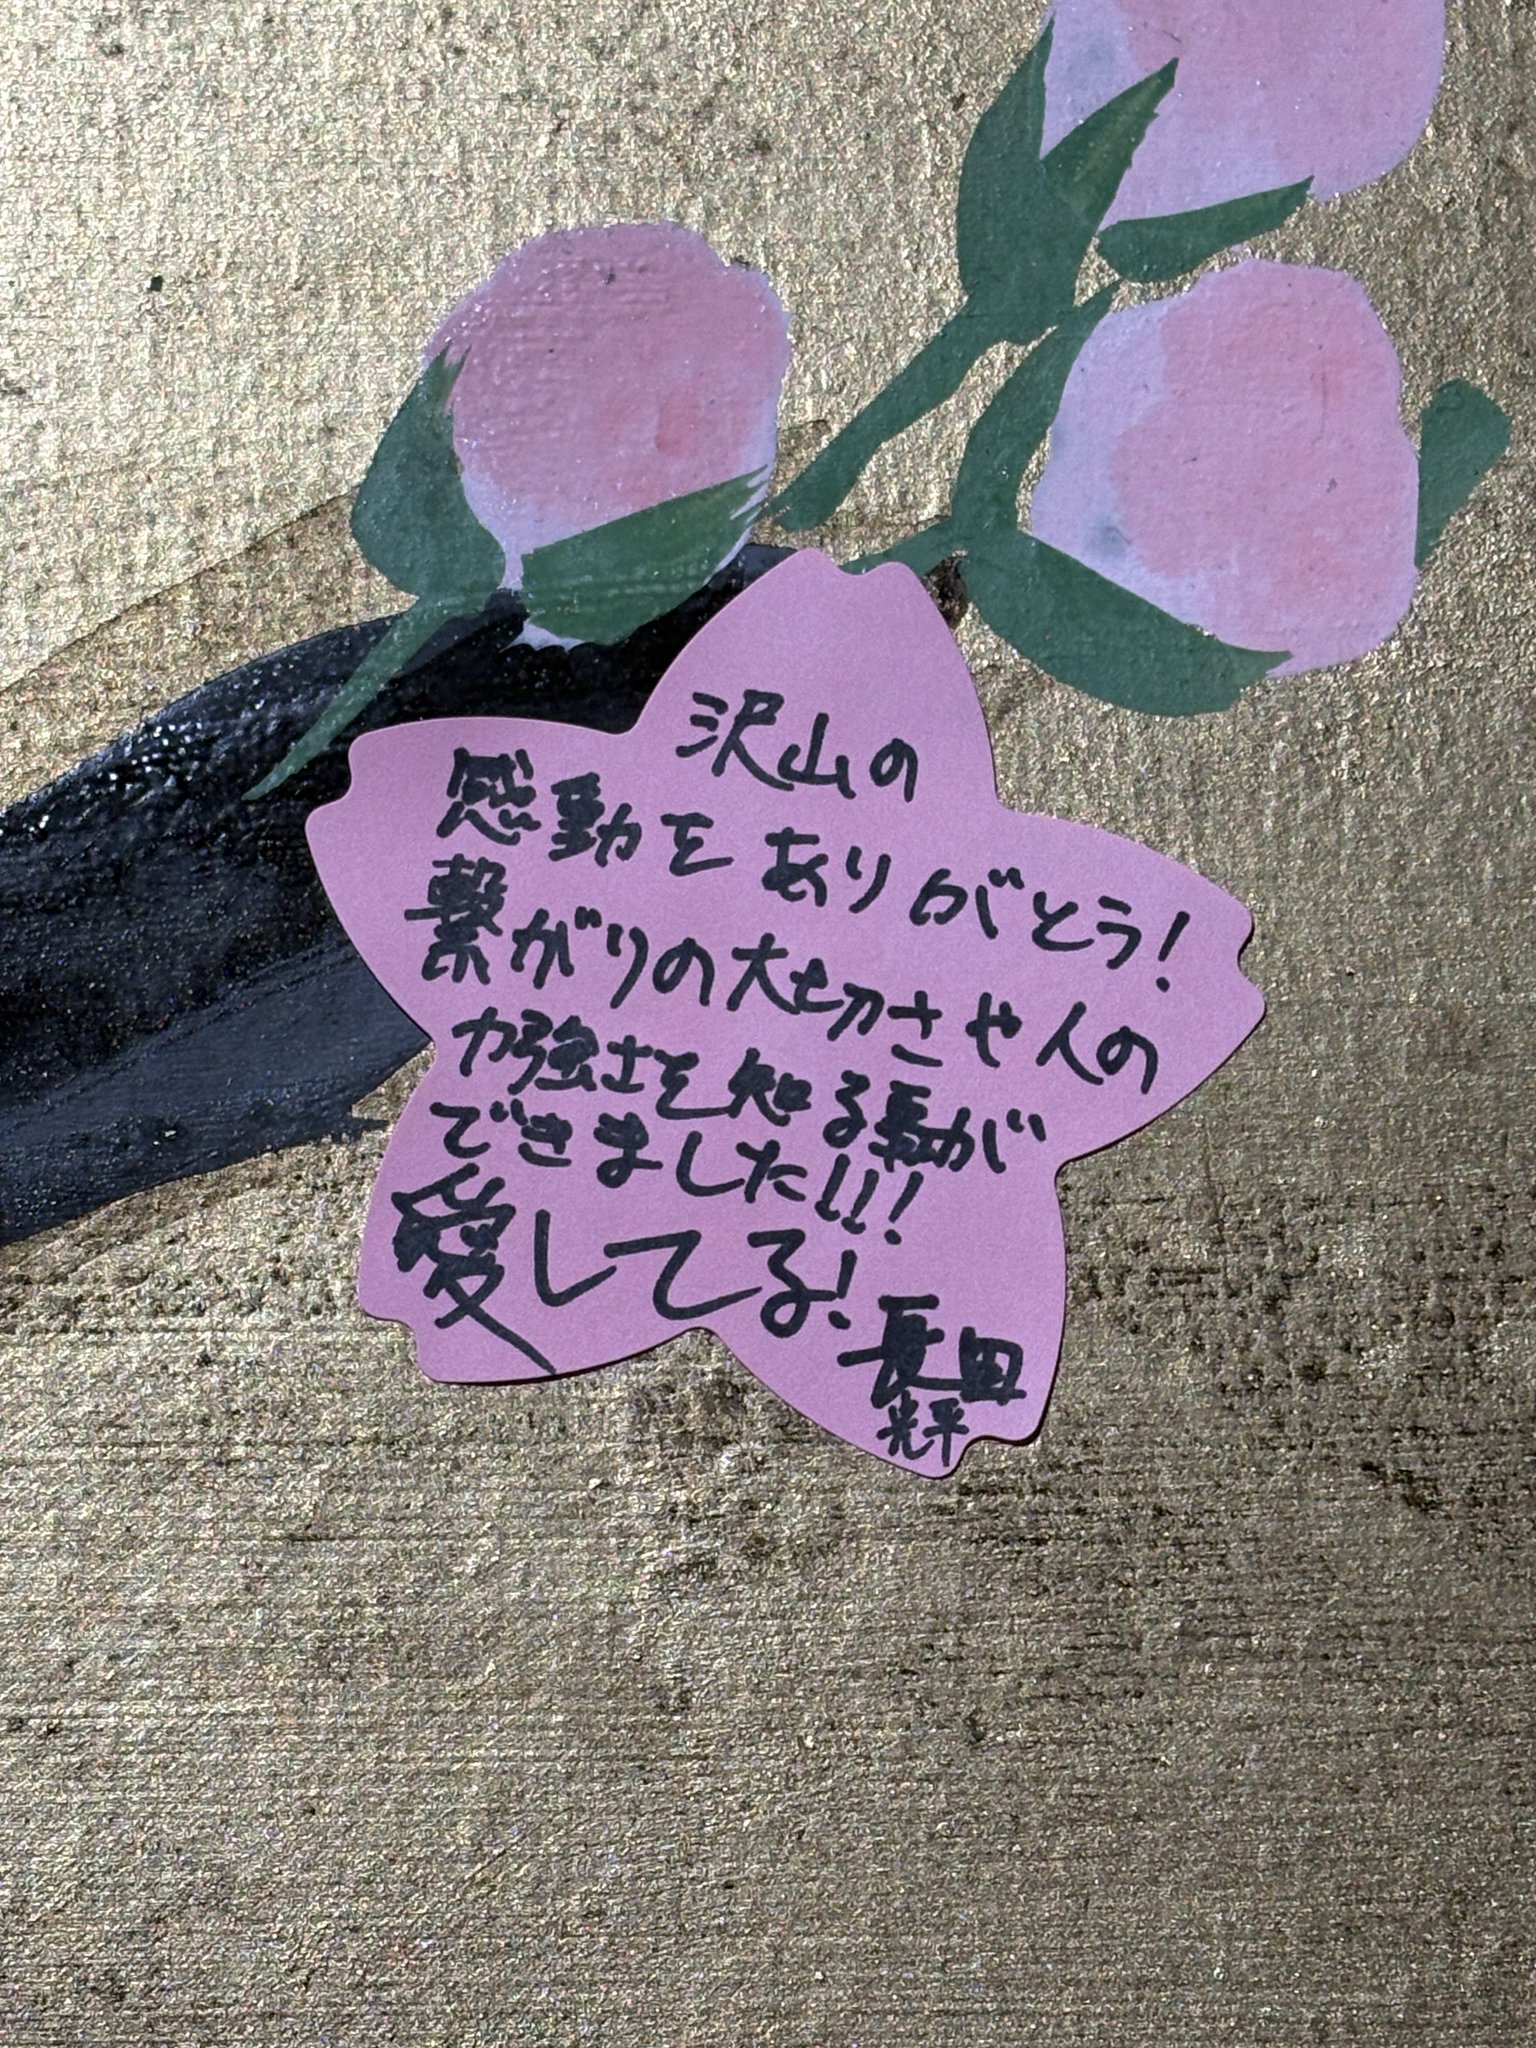 沢山の
感動を ありがとう!
繋がりの大切さや人の
力強さを知る事が
できました!!!
愛してる!
長田
光平